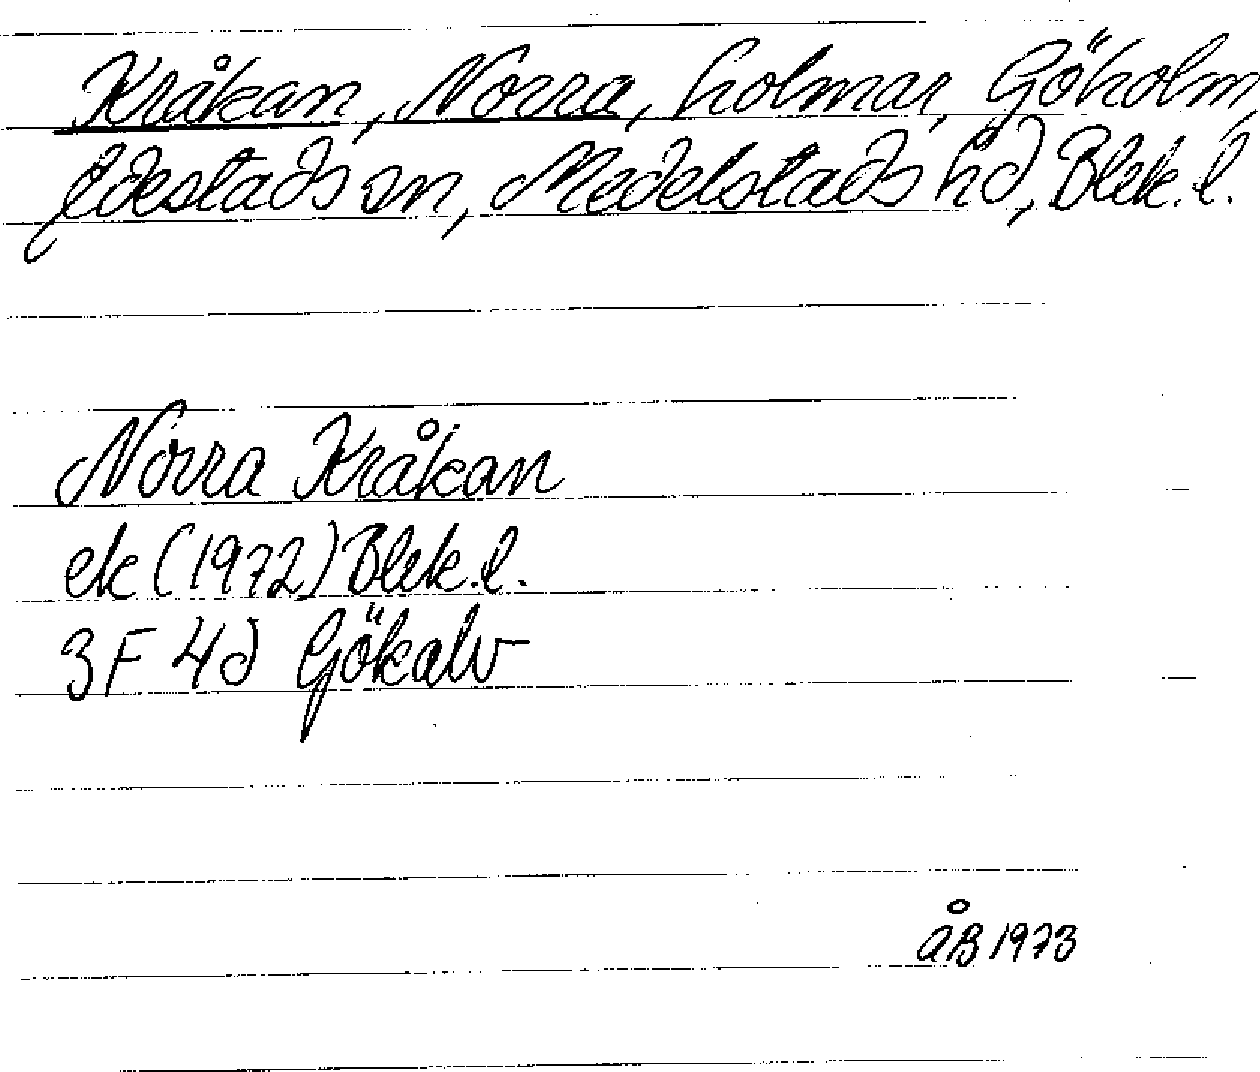 Kråkan, Norra, holmar, Göholm,
Edestads sn, Medelstads hd, Blek. l.
Norra Kråkan
ek (1972) Blek. l.
3 F 4d Gökalv
ÅB 1973